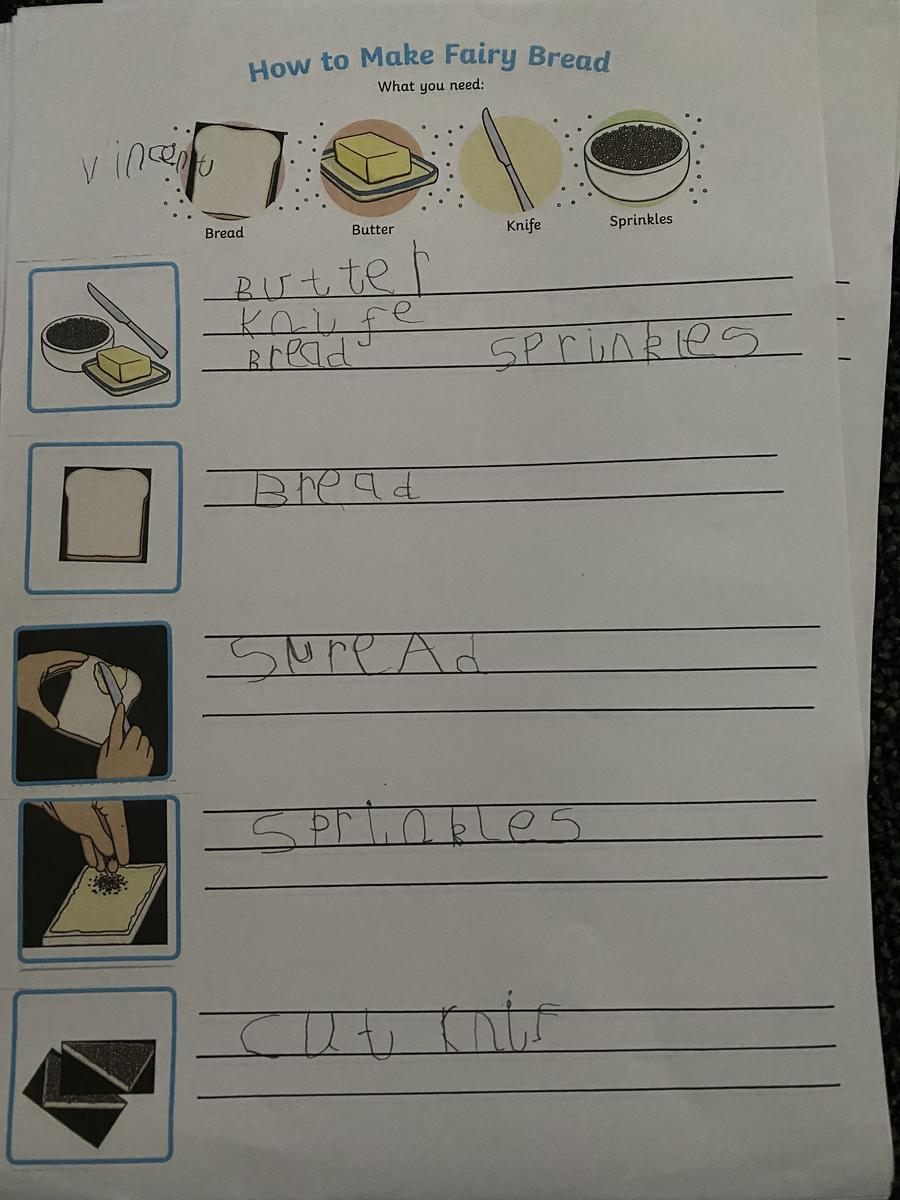 How to Make Fairy Bread
What you need:
Vincent
Bread Butter Knife Sprinkles
Butter
Knife
Bread Sprinkles
Bread
SnreAd
Sprinkles
Cut Knif